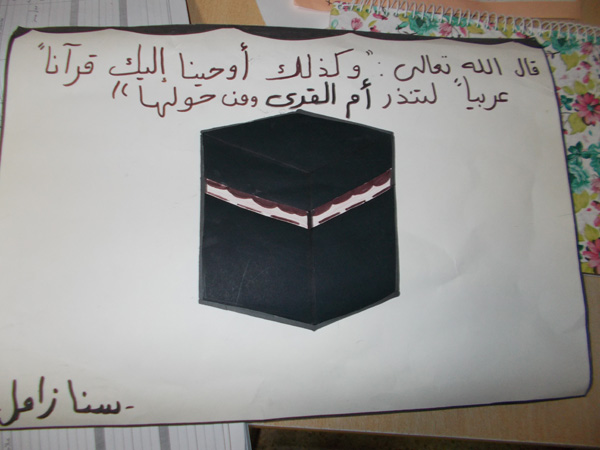 قال الله تعالى : " وكذلك أوحينا إليك قرآناً
عربياً لتنذر أم القرى ومن حولها "
- سنا زامل